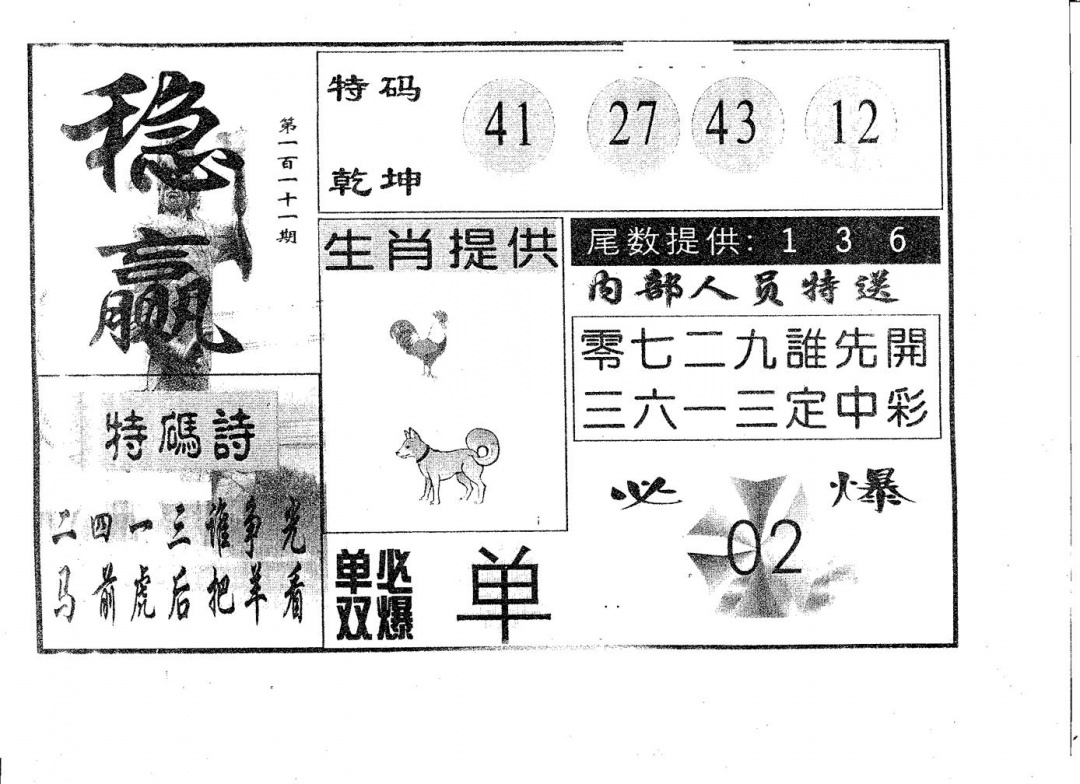 稳赢
第一百一十一期
特码
乾坤
41 27 43 12
生肖提供
尾数提供: 1 3 6
内部人员特送
零七二九誰先開
三六一三定中彩
特碼詩
二四一三谁争光
马前虎后把羊看
单双必爆
单
必爆
02